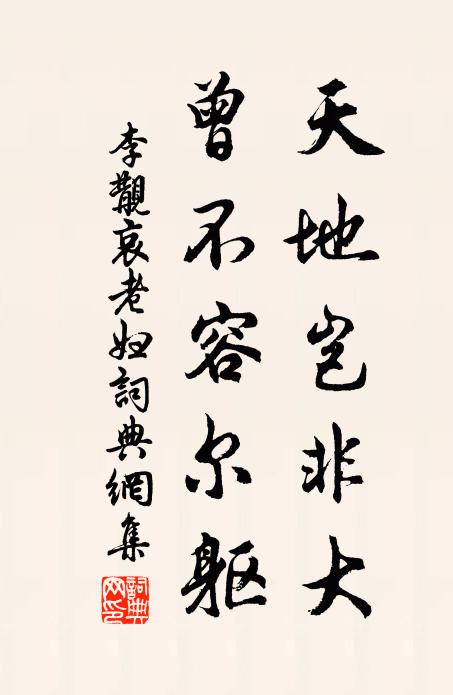 天地岂非大
曾不容尔躯
李觀哀老妇詞典網集
詞典网印